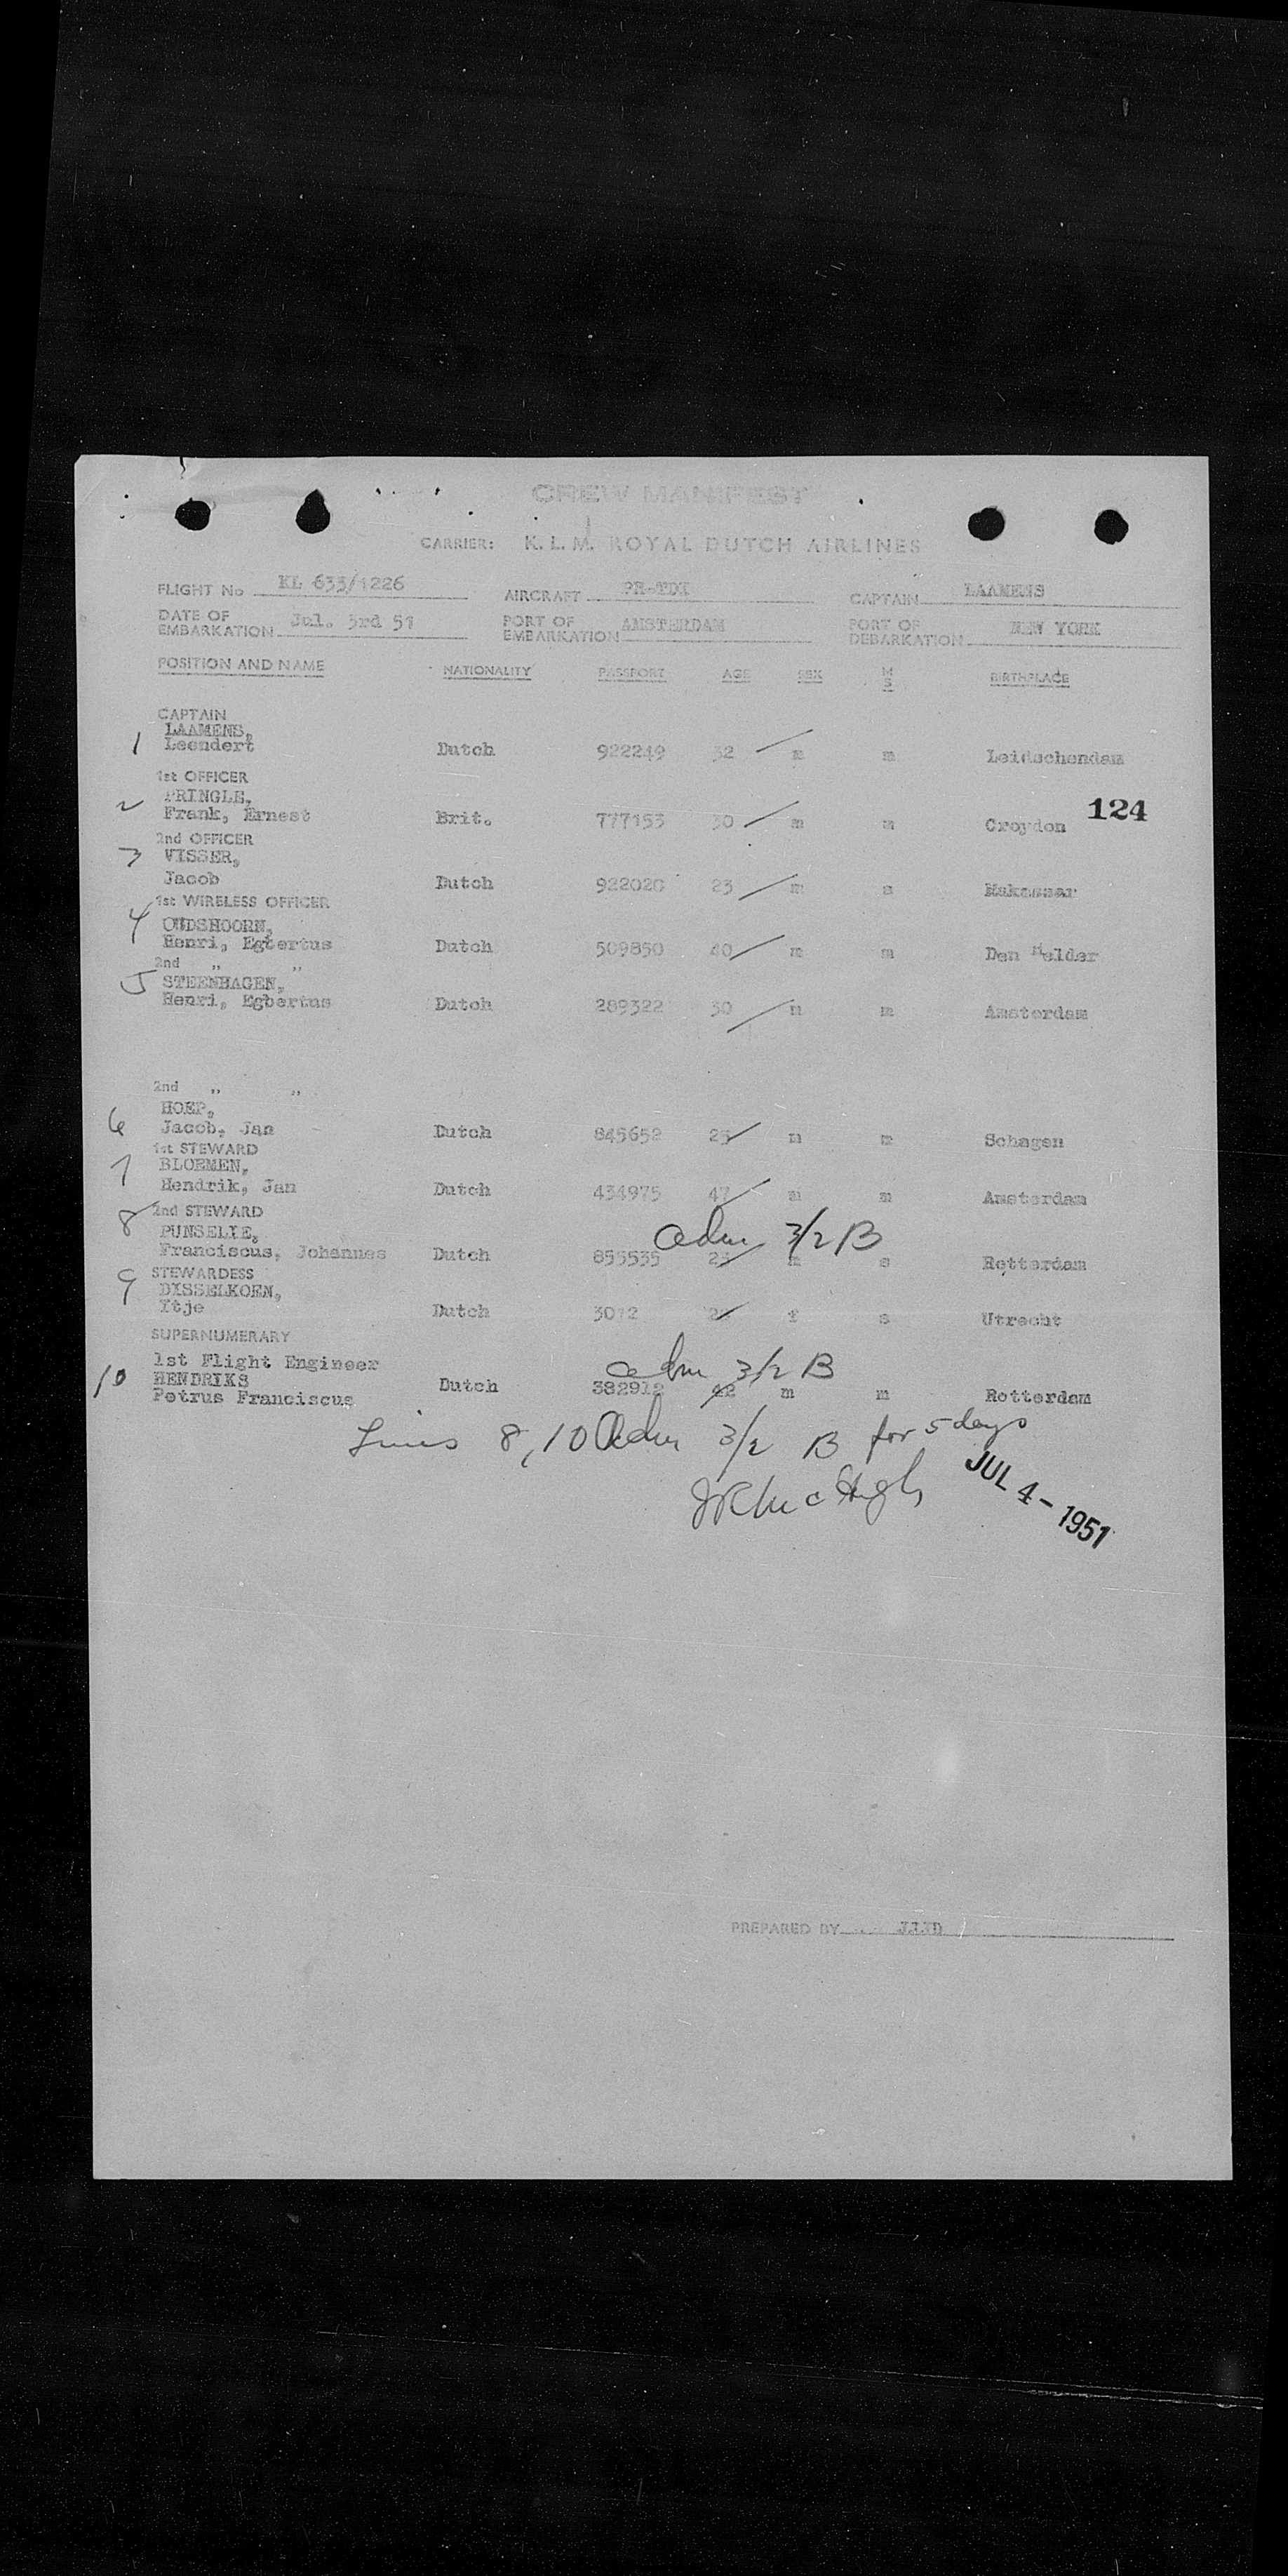 CREW MANIFEST
CARRIER: K. L. M. ROYAL DUTCH AIRLINES
FLIGHT No KL 633/1226 AIRCRAFT CAPTAIN LAAMENS
DATE OF EMBARKATION Jul. 3rd 51 PORT OF EMBARKATION AMSTERDAM PORT OF DEBARKATION NEW YORK
POSITION AND NAME NATIONALITY PASSPORT AGE SEX M S BIRTHPLACE
CAPTAIN
LAAMENS,
1 Leendert Dutch 922249 32 m m Leidschendam
1st OFFICER
PRINGLE,
2 Frank, Ernest Brit. 777153 30 m m Croydon 124
2nd OFFICER
3 VISSER,
Jacob Dutch 922020 23 m s Makassar
1st WIRELESS OFFICER
4 OUDSHOORN,
Henri, Egbertus Dutch 509850 40 m m Den Helder
2nd " "
5 STEENHAGEN,
Henri, Egbertus Dutch 289322 30 m m Amsterdam
2nd " "
HOEP,
6 Jacob, Jan Dutch 845652 25 m m Schagen
1st STEWARD
7 BLOEMEN,
Hendrik, Jan Dutch 434975 47 m m Amsterdam
8 2nd STEWARD
PUNSELIE, adm 3/2 B
Franciscus, Johannes Dutch 855535 23 m s Rotterdam
9 STEWARDESS
DISSELKOEN,
Itje Dutch 3012 f s Utrecht
SUPERNUMERARY
1st Flight Engineer adm 3/2 B
10 HENDRIKS Dutch 382912 42 m m Rotterdam
Petrus Franciscus
Lines 8, 10 Adm 3/2 B for 5 days
JUL 4 - 1951
PREPARED BY JJJD